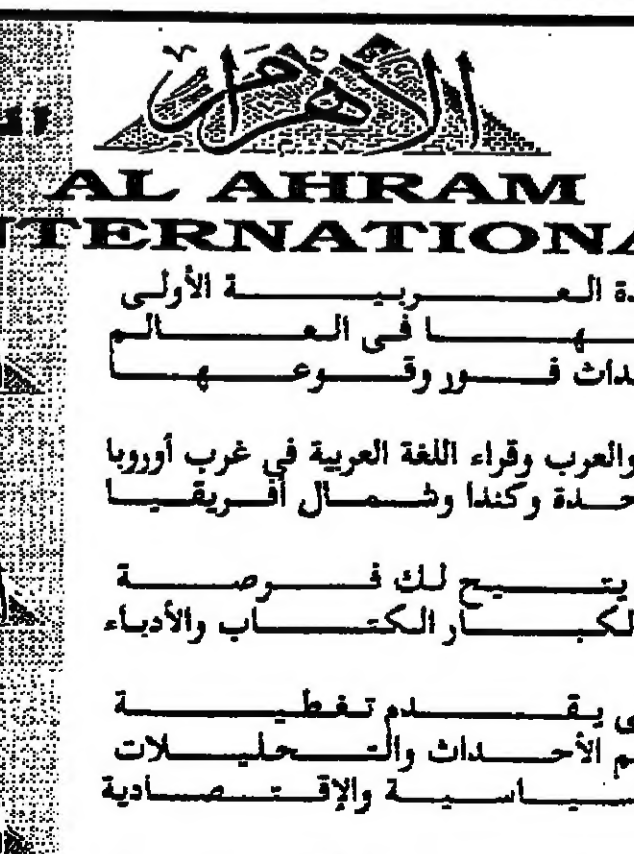 الأهرام
AL AHRAM
NTERNATIONA
دة العربية الأولى
ها فى العالم
داث فور وقوعها
والعرب وقراء اللغة العربية في غرب أوروبا
حدة وكندا وشمال أفريقيا
يتيح لك فرصة
لكبار الكتاب والأدباء
ى يقدم تغطية
م الأحداث والتحليلات
سياسية والإقتصادية